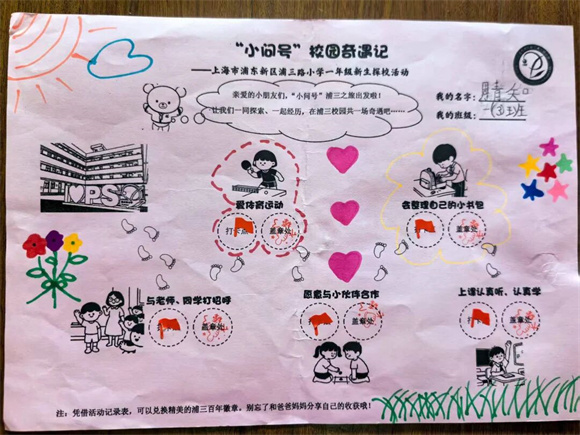 “小问号”校园奇遇记
——上海市浦东新区浦三路小学一年级新生探校活动
亲爱的小朋友们，“小问号”浦三之旅出发啦！
让我们一同探索、一起经历，在浦三校园共一场奇遇吧……
我的名字：
我的班级：
I PS
爱体育运动
会整理自己的小书包
打卡处 盖章处
盖章处
与老师、同学打招呼
愿意与小伙伴合作
上课认真听、认真学
盖章处
盖章处
盖章处
注：凭借活动记录表，可以兑换精美的浦三百年徽章，别忘了和爸爸妈妈分享自己的收获哦！